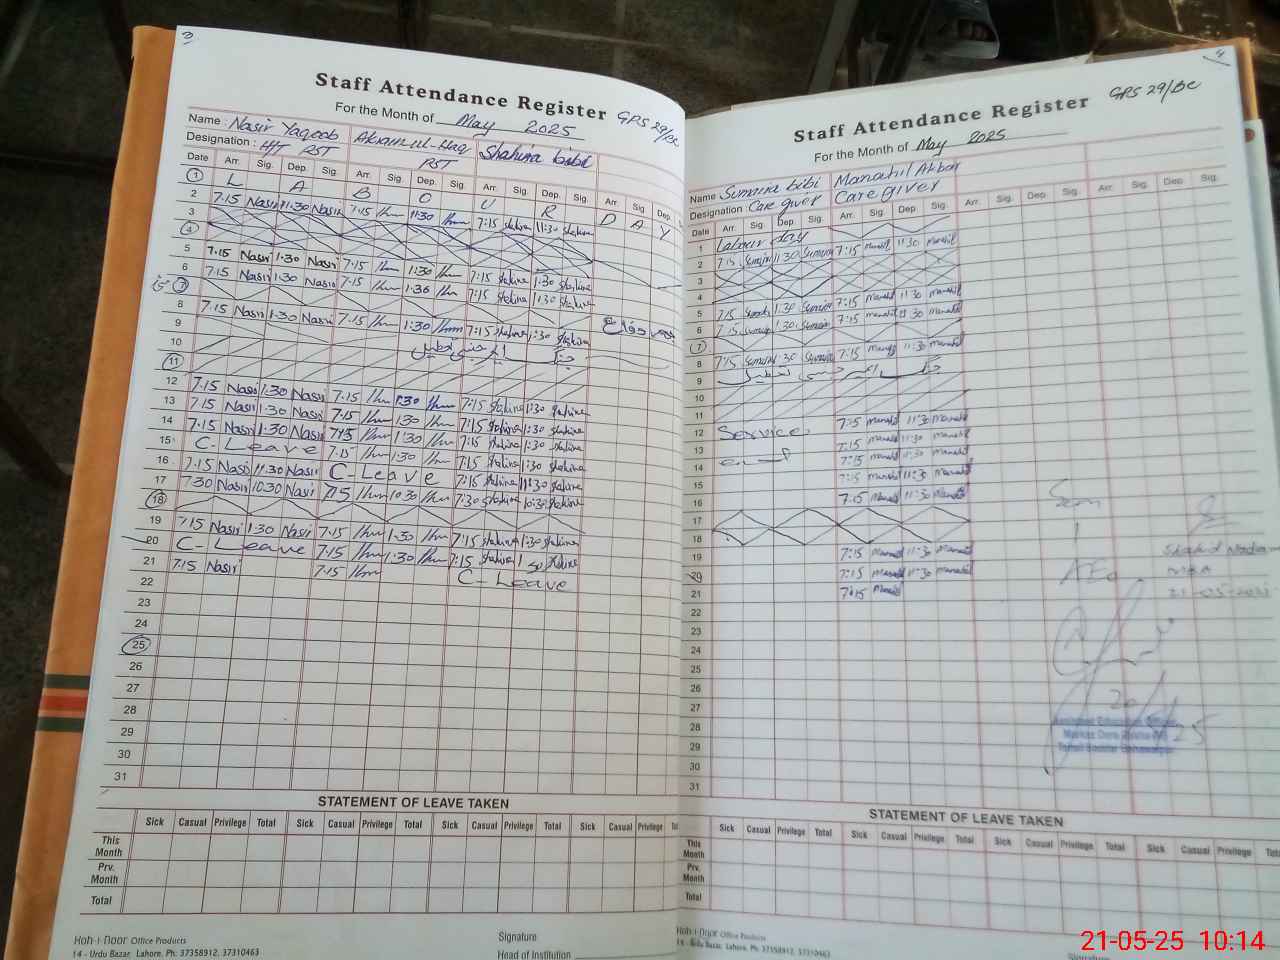 3
Staff Attendance Register
For the Month of May 2025 GPS 29/BC
Name : Nasir Yaqoob Akram ul-Haq Shahina bibi
Designation : H/T PST PST
Date Arr. Sig. Dep. Sig. Arr. Sig. Dep. Sig. Arr. Sig. Dep. Sig. Arr. Sig. Dep.
1 L A B O U R D A Y
2 7.15 Nasir 11:30 Nasir 7.15 11:30 7:15 Shahina 11:30 Shahina
3
4
5 7.15 Nasir 1.30 Nasir 7.15 1:30 7:15 Shahina 1:30 Shahina
6 7.15 Nasir 1.30 Nasir 7.15 1:30 7:15 Shahina 1:30 Shahina
7
8 7.15 Nasir 1.30 Nasir 7.15 1:30 7:15 Shahina 1:30 Shahina
9
10
11
12 7.15 Nasir 1:30 Nasir 7.15 1:30 7:15 Shahina 1:30 Shahina
13 7.15 Nasir 1:30 Nasir 7.15 1:30 7:15 Shahina 1:30 Shahina
14 7.15 Nasir 1:30 Nasir 7.15 1:30 7:15 Shahina 1:30 Shahina
15 C-Leave 7.15 1:30 7:15 Shahina 1:30 Shahina
16 7.15 Nasir 11.30 Nasir C-Leave 7:15 Shahina 11:30 Shahina
17 7:30 Nasir 10:30 Nasir 7.15 10:30 7:30 Shahina 10:30 Shahina
18
19 7.15 Nasir 1:30 Nasir 7.15 1.30 7:15 Shahina 1:30 Shahina
20 C-Leave 7.15 1.30 7:15 Shahina 1 30 Shahina
21 7:15 Nasir 7.15 C-Leave
22
23
24
25
26
27
28
29
30
31
STATEMENT OF LEAVE TAKEN
Sick Casual Privilege Total Sick Casual Privilege Total Sick Casual Privilege Total Sick Casual Privilege
This Month
Prv. Month
Total
Koh-i-Noor Office Products
14 - Urdu Bazar, Lahore. Ph. 37358912, 37310463
Signature
Head of Institution
4
Staff Attendance Register GPS 29/BC
For the Month of May 2025
Name Sumaira bibi Manahil Akbar
Designation Care giver Caregiver
Date Arr. Sig. Dep. Sig. Arr. Sig. Dep. Sig. Arr. Sig. Dep. Sig. Arr. Sig. Dep. Sig.
1 Labour day
2 7:15 Sumaira 11:30 Sumaira 7:15 Manahil 11:30 Manahil
3
4
5 7:15 1:30 Sumaira 7:15 Manahil 11:30 Manahil
6 7:15 Sumaira 1:30 Sumaira 7:15 Manahil 11:30 Manahil
7
8 7:15 Sumaira 1:30 Sumaira 7:15 Manahil 11:30 Manahil
9
10
11
12 Service 7:15 Manahil 11:30 Manahil
13 7:15 Manahil 11:30 Manahil
14 7:15 Manahil 11:30 Manahil
15 7:15 Manahil 11:30 Manahil
16 7:15 Manahil 11:30 Manahil
17
18
19 7:15 Manahil 11:30 Manahil
20 7:15 Manahil 11:30 Manahil
21 7:15 Manahil
22
23
24
25
26
27
28
29
30
31
Seen
AEO
Shahid
MEA
21-05-2025
Assistant Education Officer
STATEMENT OF LEAVE TAKEN
Sick Casual Privilege Total Sick Casual Privilege Total Sick Casual Privilege Total Sick Casual Privilege
This Month
Prv. Month
Total
Koh-i-Noor Office Products
14 - Urdu Bazar, Lahore. Ph. 37358912, 37310463
Signature
21-05-25 10:14